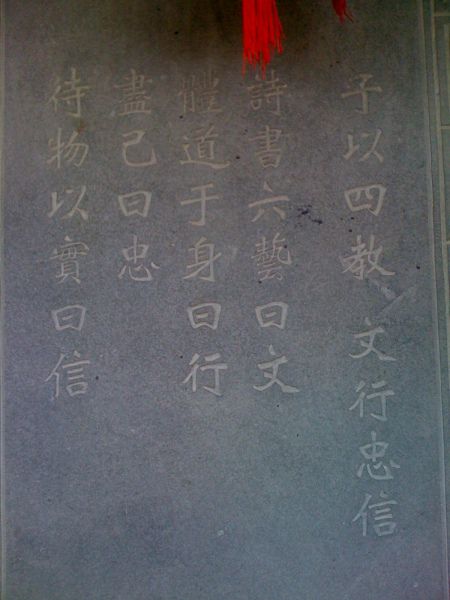 子以四教 文行忠信
詩書六藝曰文
體道于身曰行
盡己曰忠
待物以實曰信